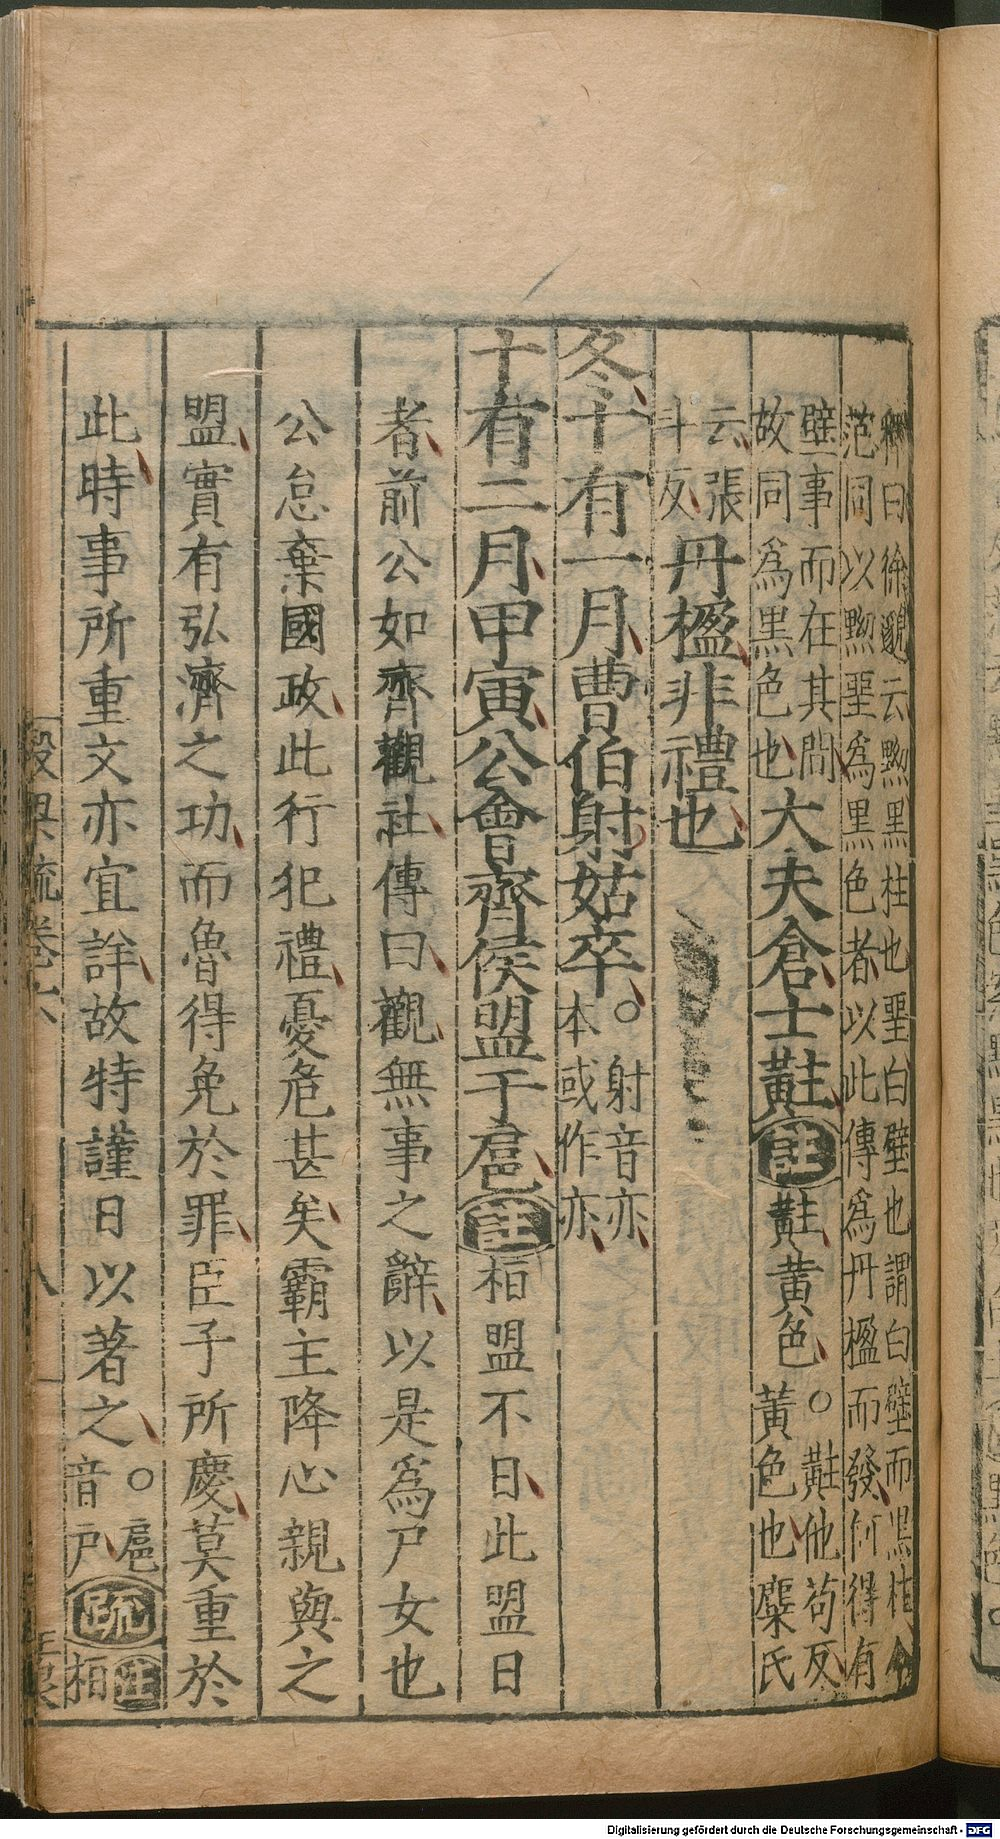 釋曰徐邈云黝黑柱也堊白壁也謂白壁而黑柱今
范同以黝堊爲黑色者以此傳爲丹楹而發何得有
壁事而在其間
故同爲黑色也
大夫倉士黈
註
黈黃色
○黈他苟反
黃色也麋氏
云張
斗反
丹楹非禮也
冬十有一月曹伯射姑卒○
射音亦
本或作亦
十有二月甲寅公會齊侯盟于扈
註
桓盟不日此盟日
者前公如齊觀社傳曰觀無事之辭以是爲尸女也
公怠棄國政此行犯禮憂危甚矣霸主降心親與之
盟實有弘濟之功而魯得免於罪臣子所慶莫重於
此時事所重文亦宜詳故特謹日以著之
○扈
音戶
疏
註
桓
卷六
八
Digitalisierung gefördert durch die Deutsche Forschungsgemeinschaft - DFG